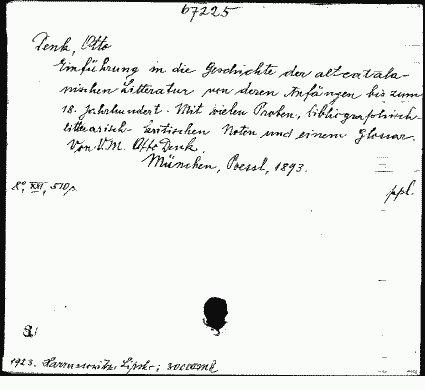 67225
Denk, Otto
Einführung in die Geschichte der altcatala-
nischen Litteratur von deren Anfängen bis zum
18. Jahrhundert. Mit vielen Proben, bibliografisch-
litterarisch-kritischen Noten und einem Glossar.
Von V. M. Otto Denk.
München, Poessl, 1893.
8°, XXVI, 510 p. ppl.
1923. Harrassowitz, Lipsk; 30000 mk